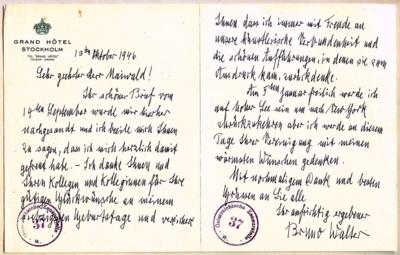 GRAND HÔTEL
STOCKHOLM
13ten Oktober 1946
Sehr geehrter Herr Maiwald!
Ihr schöner Brief vom
14ten September wurde mir hierher
nachgesandt und ich beeile mich Ihnen
zu sagen, dass ich mich herzlich damit
gefreut habe. – Ich danke Ihnen und
Ihren Kollegen und Kolleginnen für Ihre
gütigen Glückwünsche an meinem
siebzigsten Geburtstage und versichere
37
Ihnen dass ich immer mit Freude an
unsere künstlerische Verbundenheit und
die schönen Aufführungen, in denen sie zum
Ausdruck kam, zurückdenke.
Am 5ten Januar freilich werde ich
auf hoher See sein um nach New-York
zurückzukehren aber ich werde an diesem
Tage Ihrer Vereinigung mit meinen
wärmsten Wünschen gedenken.
Mit nochmaligem Dank und besten
Grüssen an Sie alle
Ihr aufrichtig ergebener
Bruno Walter
37